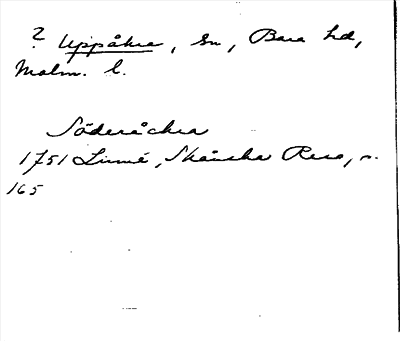 ? Uppåkra, sn, Bara hd,
Malm. l.
Söderåckra
1751 Linné, Skånska Resa, s.
165